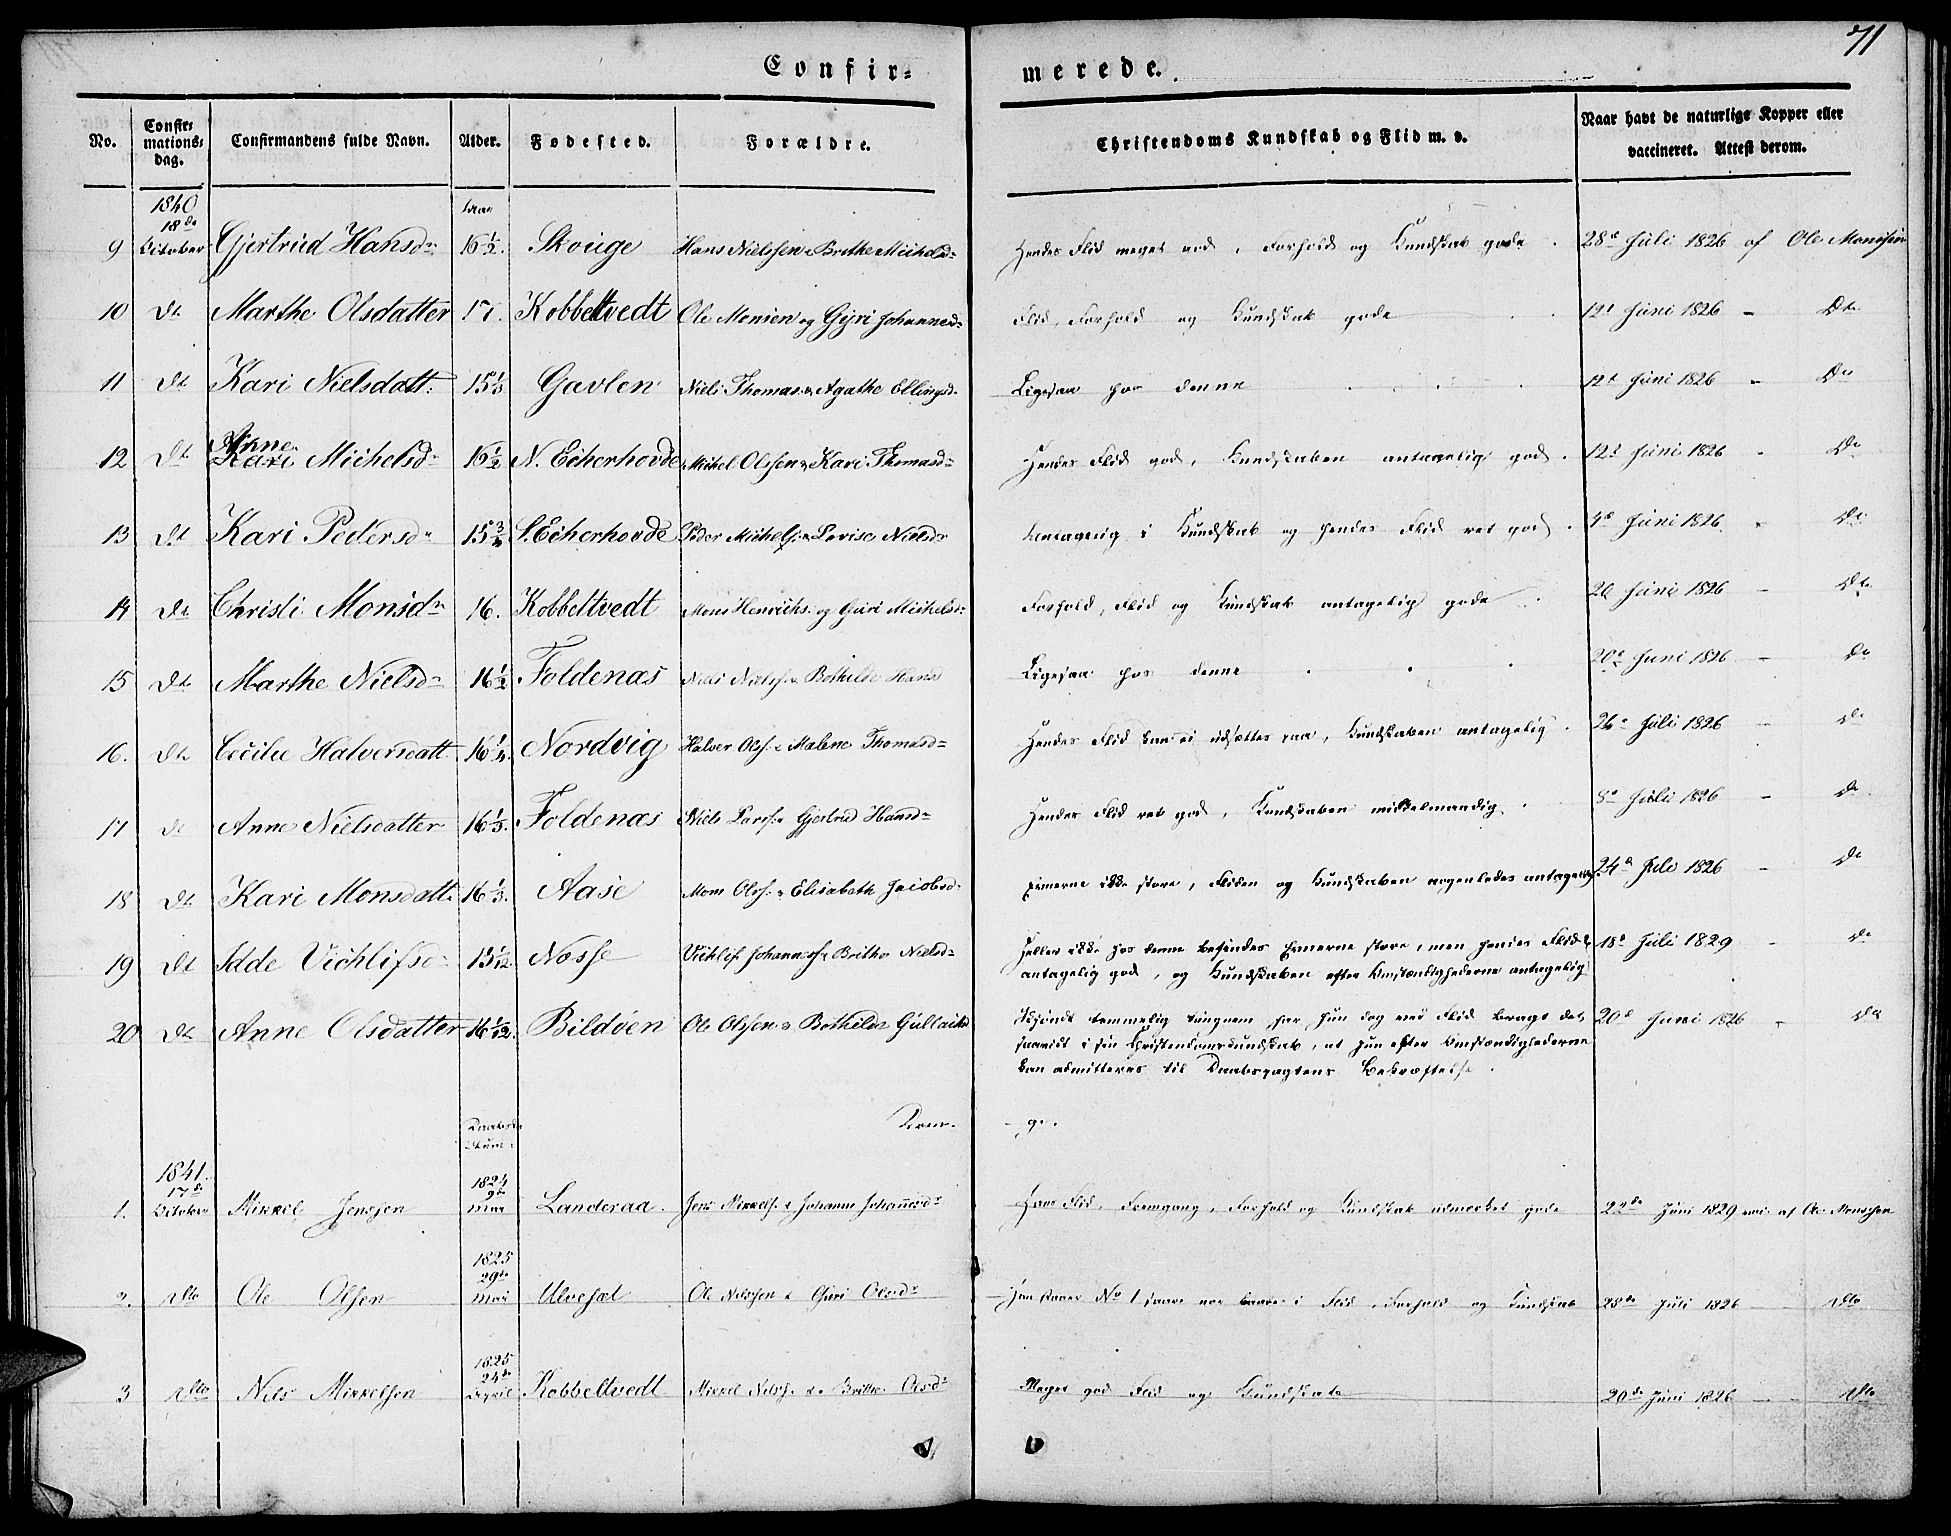 71
Confir= merede.
No. Confir= mations= dag. Confirmandens fulde Navn. Alder. Fødested. Forældre. Christendoms Kundskab og Flid m. v. Naar havt de naturlige Kopper eller vaccineret. Attest derom.
1840
18de
9 October Gjertrud Hansd. 16 1/2. Skouge Hans Nielssen & Brithe Michelsd. Hendes Flid meget god, Forhold og Kundskab gode. 28de Juli 1826 af Ole Monssen
10 Dt. Marthe Olsdatter 17. Kobbeltvedt Ole Monsen og Gjri Johannesd. Flid, Forhold og Kundskab gode 12t Juni 1826 - Dto
11 Dt. Kari Nielsdatt. 15 1/3 Gavlen Niels Thomas. & Agathe Ellingsd. Ligesaa hos denne 12t Juni 1826 - Do
Anne
12 Dt. Kari Michelsd. 16 1/2 N. Echerhovde Michel Olssen & Kari Thomasd. Hendes Flid god, Kundskaben antagelig god. 12t Juni 1826 - Do
13 Dt. Kari Pedersd. 15 3/4 S. Echerhovde Peder Michels. & Lovise Nielsd. Antagelig i Kundskab og hendes Flid ret god. 4de Juni 1826 - Do
14 Dt. Christi Monsd. 16. Kobbeltvedt Mons Henrichs. og Guri Michelsd. Forhold, Flid og Kundskab antagelig gode 20 Juni 1826 - Dto
15 Dt. Marthe Nielsd. 16 1/2 Foldenæs Niels Nielss. & Bothilde Hansd Ligesaa hos denne 20de Juni 1826 - Do
16. Dt. Cecilie Halversdatt. 16 1/4. Nordvig Halver Olss. & Malene Thomasd. Hendes Flid kan ei udsættes paa, Kundskaben antagelig. 26de Juli 1826 - Do
17 Dt Anne Nielsdatter 16 1/3. Foldenæs Niels Larss. & Gjertrud Hansd. Hendes Flid ret god, Kundskaben middelmaadig. 8de Juli 1826 - Do
18 Dt. Kari Monsdatt. 16 1/3. Aase Mons Olss. & Elisabeth Jacobsd. Evnerne ikke store, Fliden og Kundskaben nogenledes antagelig. 24de Juli 1826 - Do
19 Dt Idde Vichlifsd. 15 1/12. Nosse Vichlif Johanness. & Brithe Nielsd. Heller ikke hos denne befindes Evnerne store, men hendes Flid 18de Juli 1829 - Do
antagelig god, og Kundskaben efter Omstændighederne antagelig
20 Dt. Anne Olsdatter 16 1/12. Bildøen Ole Olssen & Bothilde Gullachsd. Ihvorvel temmelig tungnem har hun dog ved Flid bragt det 20de Juni 1826 - Do
saavidt i sin Christendomskundskab, at hun efter Omstændighederne
kan admitteres til Daabspagtens Bekræftelse.
Daabsda-
tum.
1841.
17de
1824
9de
1. October Mikkel Jensen Mai Landeraa. Jens Mikkels. & Johanne Johannesd. Hans Flid, Fremgang, Forhold og Kundskab udmærket gode 22de Juni 1829 af Ole Monssen
1825
29de
2. Dto Ole Olsen Mai Ulvesæt Ole Nilssen & Guri Olsd. Han staaer No 1 saare nær baade i Flid, Forhold og Kundskab 28de Juli 1826 - Dto
1825
24de
3 Dto Nils Mikkelsen April Kobbeltvedt Mikkel Nilss. & Brithe Olsd. Meget god Flid og Kundskab 20de Juni 1826 - Dto